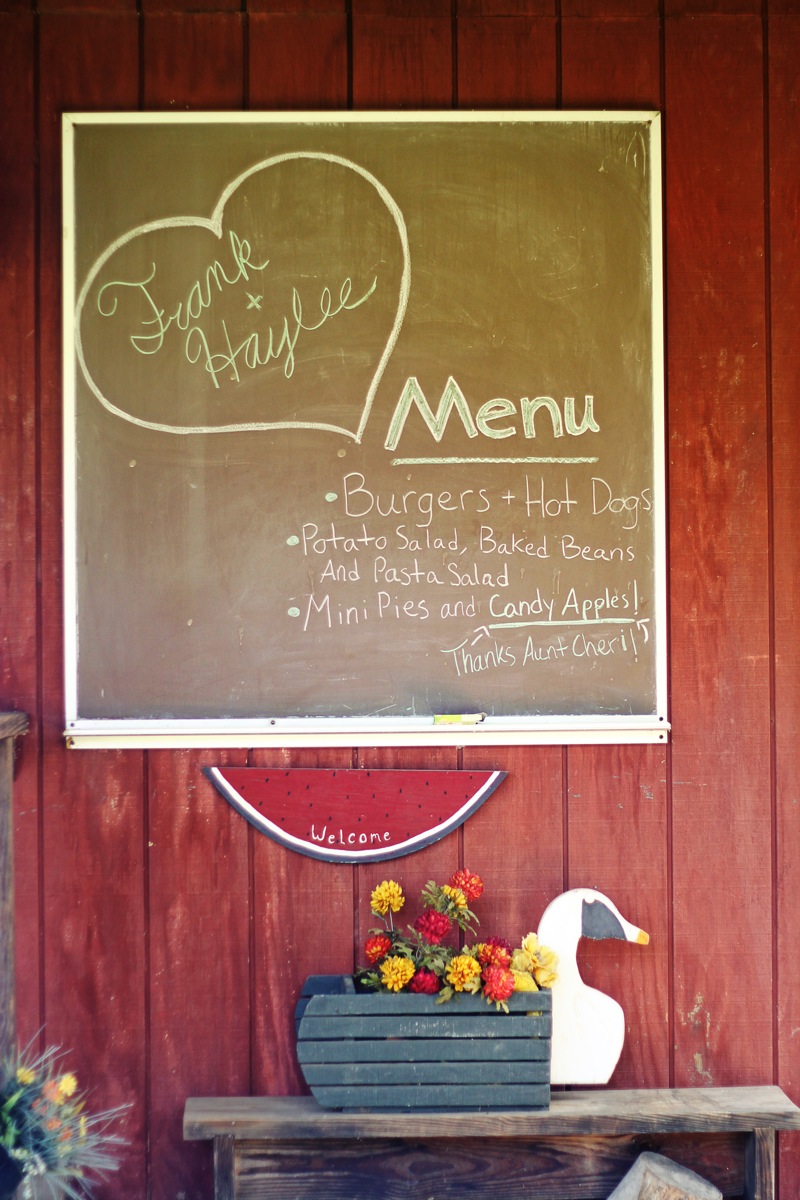 Frank
+
Haylee
Menu
• Burgers + Hot Dogs
• Potato Salad, Baked Beans
And Pasta Salad
• Mini Pies and Candy Apples!
Thanks Aunt Cheri!
Welcome